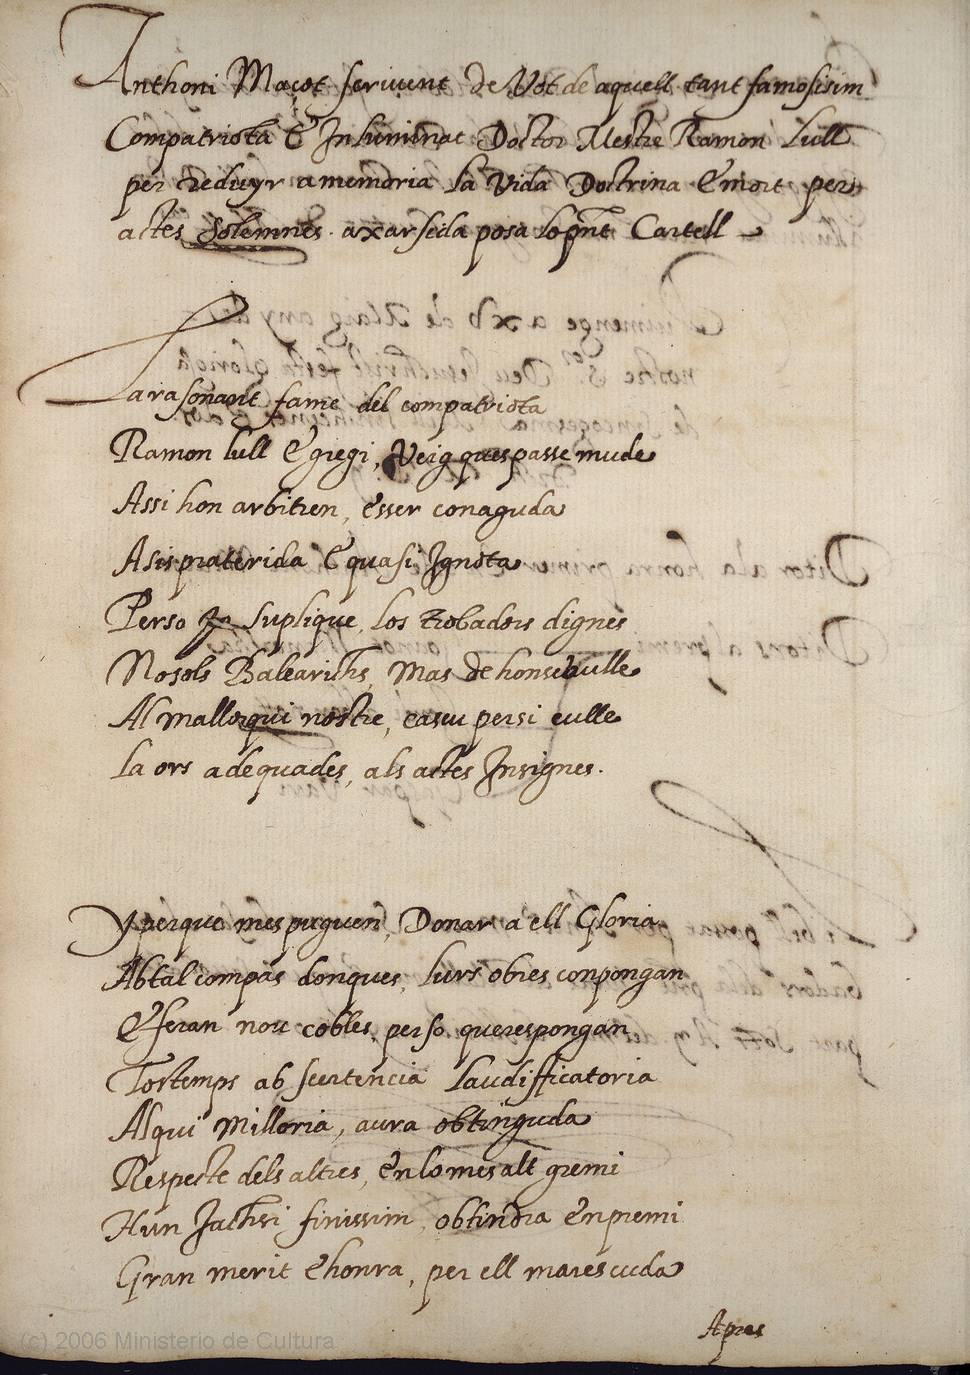 Anthoni Maçot scrivent de Vot de aquell tant famosissim
Compatriota & Inluminat Doctor Mestre Ramon lull
per reduyr a memoria la Vida Doctrina & mort per
actes solemnes. axarseda posa lo pñt Cartell
Larasonant fame del compatriota
Ramon lull Egregi, Veig ques passe mude
Assi hon arbitren, esser conaguda
Asis praterida & quasi Ignota
Perso Jo suplique, los trobadors dignes
No sols Balearichs, mas de hon se vulle
Al mallorqui nostre, cascu per si culle
la ors adequades, als actes Insignes.
Y perque mes puguen, Donar a ell Gloria
Ab tal compas donques, lurs obres conpongan
E feran nou cobles, perso que respongan
Tostemps ab sentencia laudifficatoria
Al qui Milloria, aura obtinguda
Respecte dels altres, en lo mes alt gremi
Hun Jacinti finissim, obtindra en premi
Gran merit & honra, per ell marescuda
Apres
(c) 2006 Ministerio de Cultura